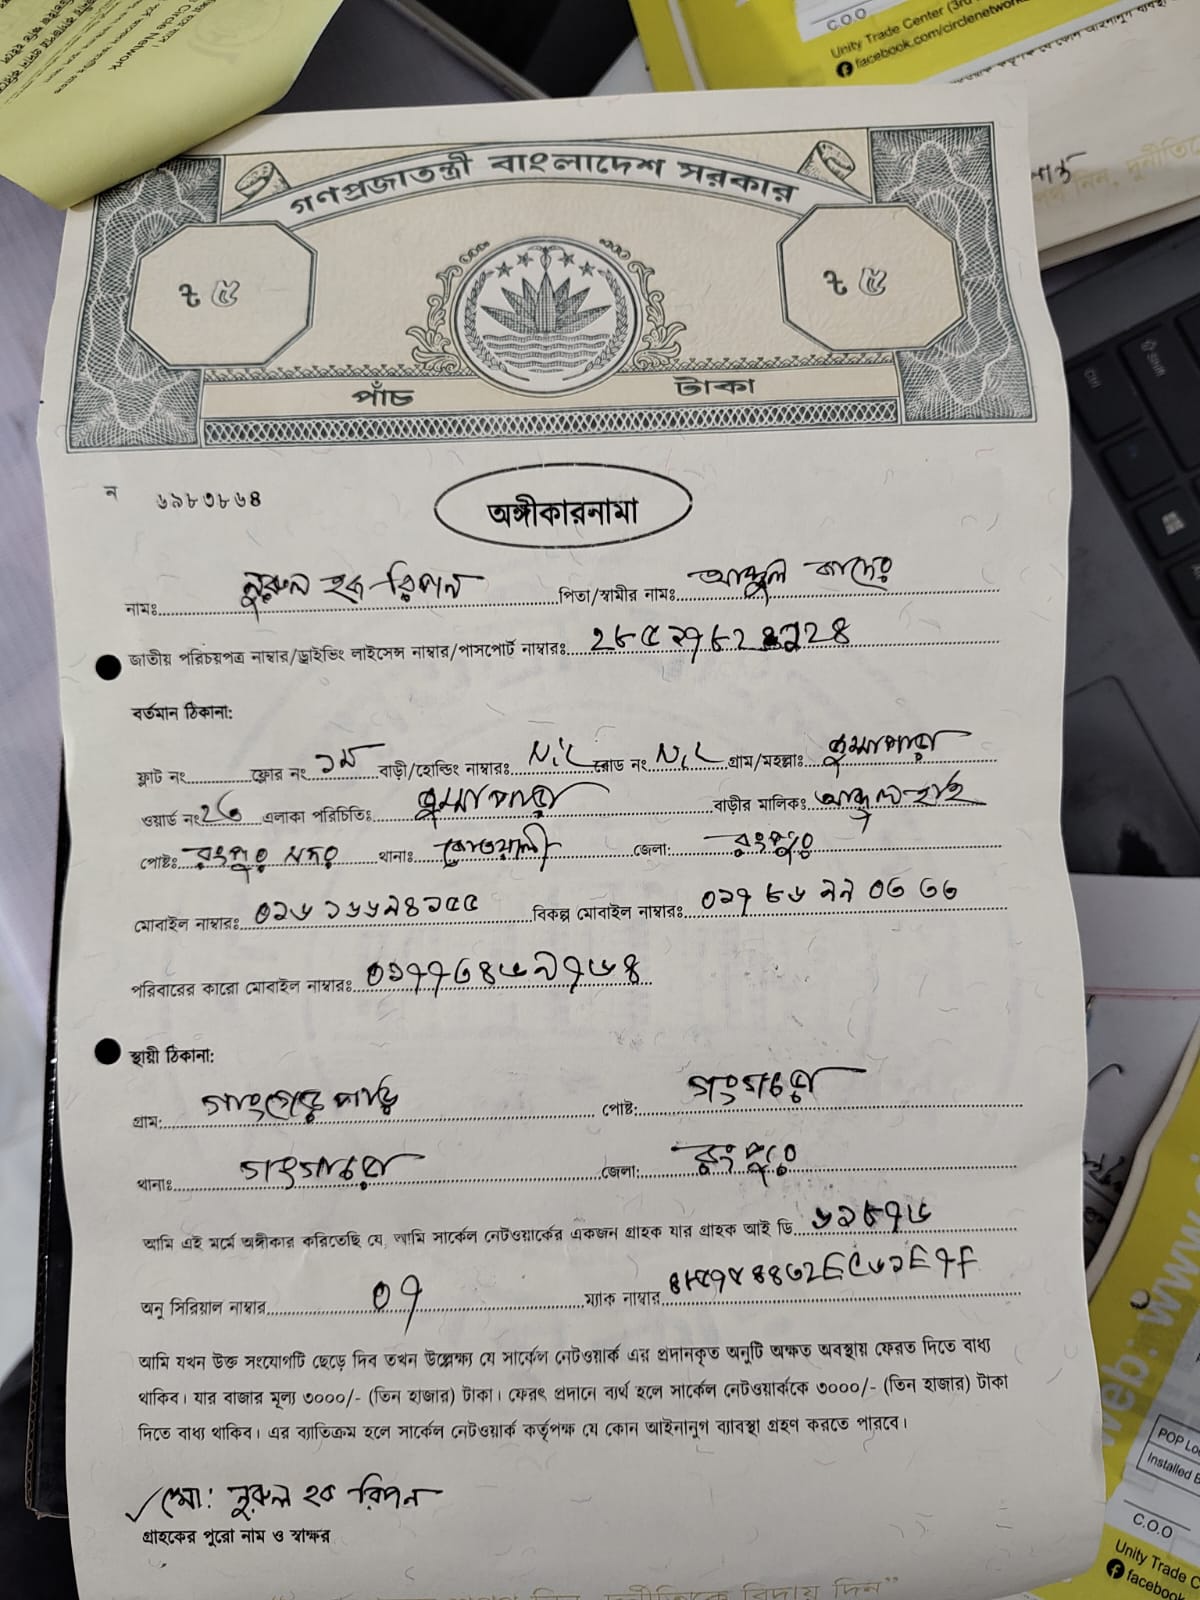 Circle Network
C.O.O
Unity Trade Center (3rd
facebook.com/circlenetwork
গণপ্রজাতন্ত্রী বাংলাদেশ সরকার
৳ ৫
৳ ৫
পাঁচ টাকা
ন ৬৯৮৩৮৬৪
অঙ্গীকারনামা
নামঃ নুরুল হক রিপন পিতা/স্বামীর নামঃ আব্দুল কাদের
জাতীয় পরিচয়পত্র নাম্বার/ড্রাইভিং লাইসেন্স নাম্বার/পাসপোর্ট নাম্বারঃ
বর্তমান ঠিকানা:
ফ্লাট নং ফ্লোর নং ১ম বাড়ী/হোল্ডিং নাম্বারঃ NiL রোড নং NiL গ্রাম/মহল্লাঃ
ওয়ার্ড নং এলাকা পরিচিতিঃ বাড়ীর মালিকঃ আব্দুল হাই
পোষ্টঃ রংপুর সদর থানাঃ কোতয়ালী জেলা: রংপুর
মোবাইল নাম্বারঃ ০১৬১৬৬২৪১৫৫ বিকল্প মোবাইল নাম্বারঃ
পরিবারের কারো মোবাইল নাম্বারঃ
স্থায়ী ঠিকানা:
গ্রাম: পোষ্ট: গংগাচড়া
থানাঃ গংগাচড়া জেলা: রংপুর
আমি এই মর্মে অঙ্গীকার করিতেছি যে, আমি সার্কেল নেটওয়ার্কের একজন গ্রাহক যার গ্রাহক আই ডি
অনু সিরিয়াল নাম্বার ০৭ ম্যাক নাম্বার
আমি যখন উক্ত সংযোগটি ছেড়ে দিব তখন উল্লেক্ষ্য যে সার্কেল নেটওয়ার্ক এর প্রদানকৃত অনুটি অক্ষত অবস্থায় ফেরত দিতে বাধ্য
থাকিব। যার বাজার মূল্য ৩০০০/- (তিন হাজার) টাকা। ফেরৎ প্রদানে ব্যর্থ হলে সার্কেল নেটওয়ার্ককে ৩০০০/- (তিন হাজার) টাকা
দিতে বাধ্য থাকিব। এর ব্যাতিক্রম হলে সার্কেল নেটওয়ার্ক কর্তৃপক্ষ যে কোন আইনানুগ ব্যাবস্থা গ্রহণ করতে পারবে।
মো: নুরুল হক রিপন
গ্রাহকের পুরো নাম ও স্বাক্ষর
বিদায় দিন”
web: www.
POP Lo
Installed B
C.O.O
Unity Trade C
facebook
Ctrl
Shift